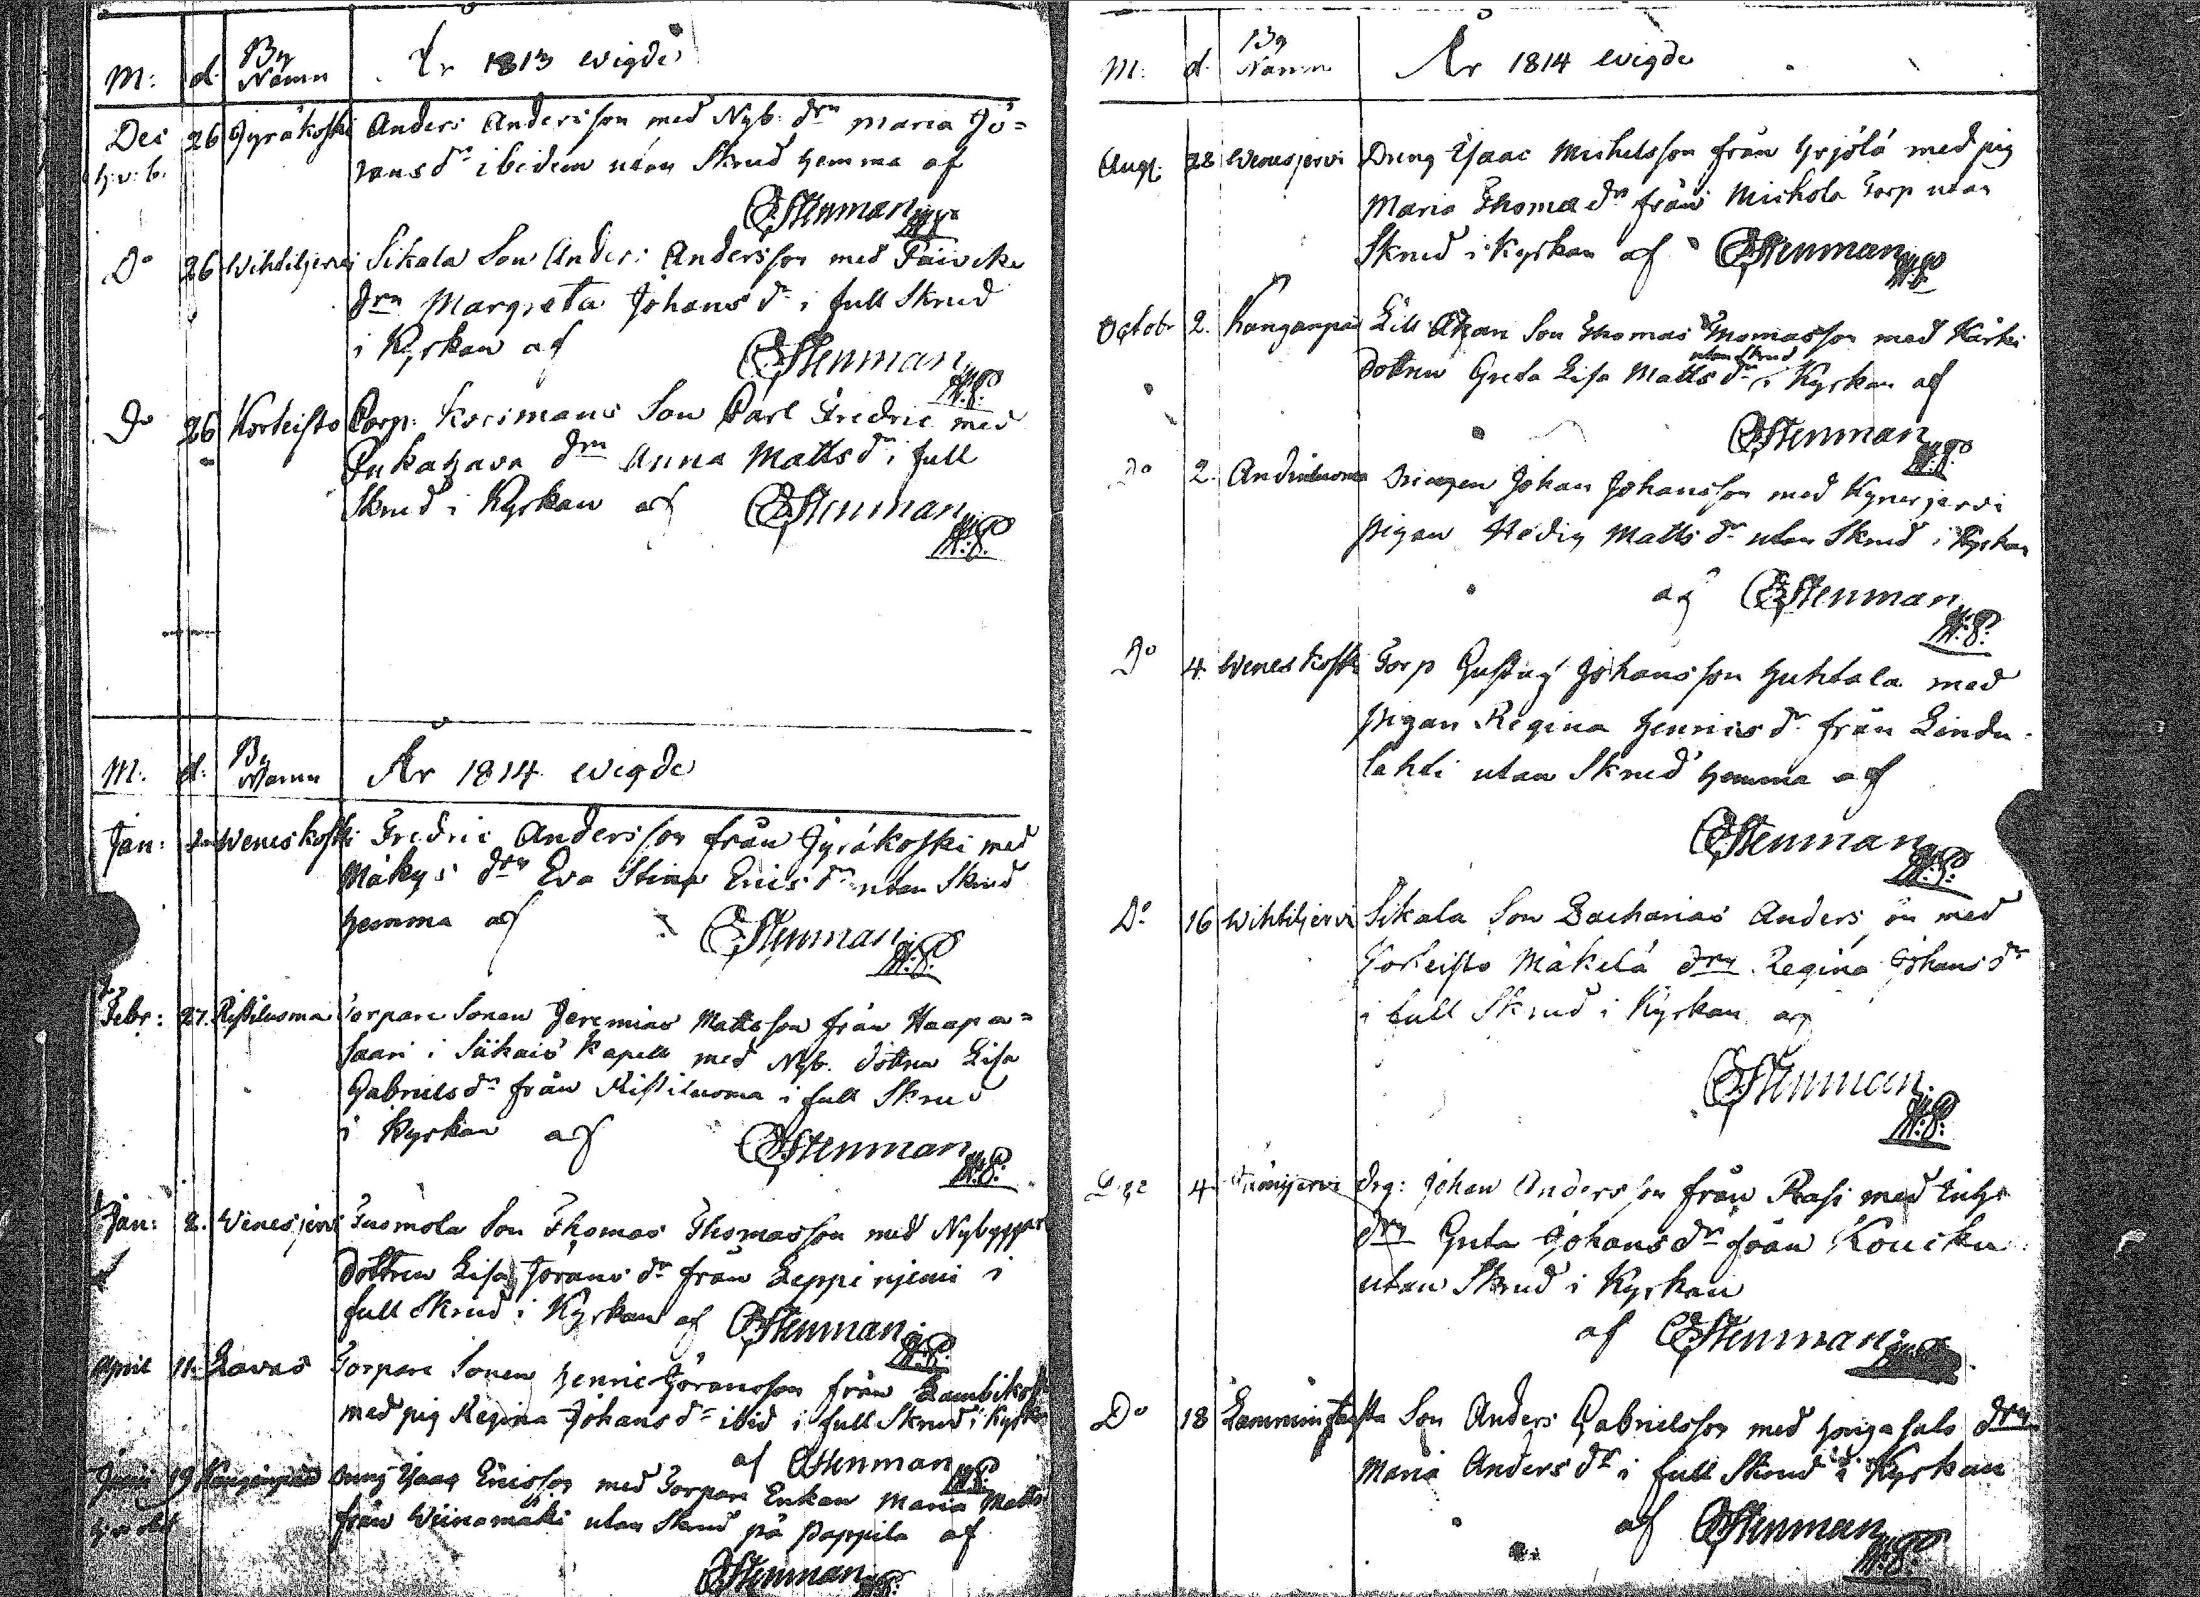 M: d. By Namn År 1813 wigde
Dec 26 Jyräkoski Anders Andersson med Nyb. drn Maria Jö=
h: v: b. ransdr ibidem utan Skrud hemma af
Stenman
Do 26 Wihtiljervi Sikala Son Anders Andersson med Päivike
drn Margreta Johansdr i full Skrud
i Kyrkan af Stenman
Do 26 Korteisto Corp. Son Carl Fredric med
drn Anna Mattsdr i full
Skrud i Kyrkan af Stenman
M: d: By Namn År 1814 wigde
Jan: Weneskoski Fredric Andersson från Jyräkoski med
Mäkys drn Eva Stina Ericsdr utan Skrud
hemma af Stenman
Febr: 27. Ristiluoma Torpare Sonen Jeremias Mattsson från Haapa=
saari i Siikais Kapell med Nyb. dottren Lisa
Gabrielsdr från Ristiluoma i full Skrud
i Kyrkan af Stenman
Jan: 2. Wenesjervi Tuomola Son Thomas Thomasson med Nybyggar
dottren Lisa Jöransdr från Leppinjemi i
full Skrud i Kyrkan af Stenman
April 11. Lavas Torpare Sonen Henric Jöransson från
med pig Regina Johansdr ibid i full Skrud i Kyrkan
af Stenman
Junii 19 Kanganpää Dreng Isaac Ericsson med Torpare Enkan Maria Matts
från Wiinamäki utan Skrud på Pappila af
Stenman
M: d. By Namn År 1814 wigde
Aug. 28 Wenesjervi Dreng Isaac Michelsson från Yrjölä med pig
Maria Thomædr från Mickola Torp utan
Skrud i Kyrkan af Stenman
Octobr 2. Kanganpää Lill Son Thomas Thomasson med Kärki
utan Skrud
dottren Greta Lisa Mattsdr i Kyrkan af
Stenman
Do 2. Drengen Johan Johansson med Kynerjervi
pigan Hedvig Mattsdr utan Skrud i Kyrkan
af Stenman
Do 4. Weneskoski Torp Gustaf Johansson Huhtala med
pigan Regina Henricsdr från Lindu-
lahti utan Skrud hemma af
Stenman
Do 16 Wihtiljervi Sikala Son Zacharias Anders ön med
Korteisto Mäkelä drn Regina Johansdr
i full Skrud i Kyrkan af
Stenman
4. Drg: Johan Andersson från Rasi med
drn Greta Johansdr från Koucku
utan Skrud i Kyrkan
af Stenman
Do 18 Lammin Son Anders Gabrielsson med Hongasalo drn
Maria Andersdr i full Skrud i Kyrkan
af Stenman